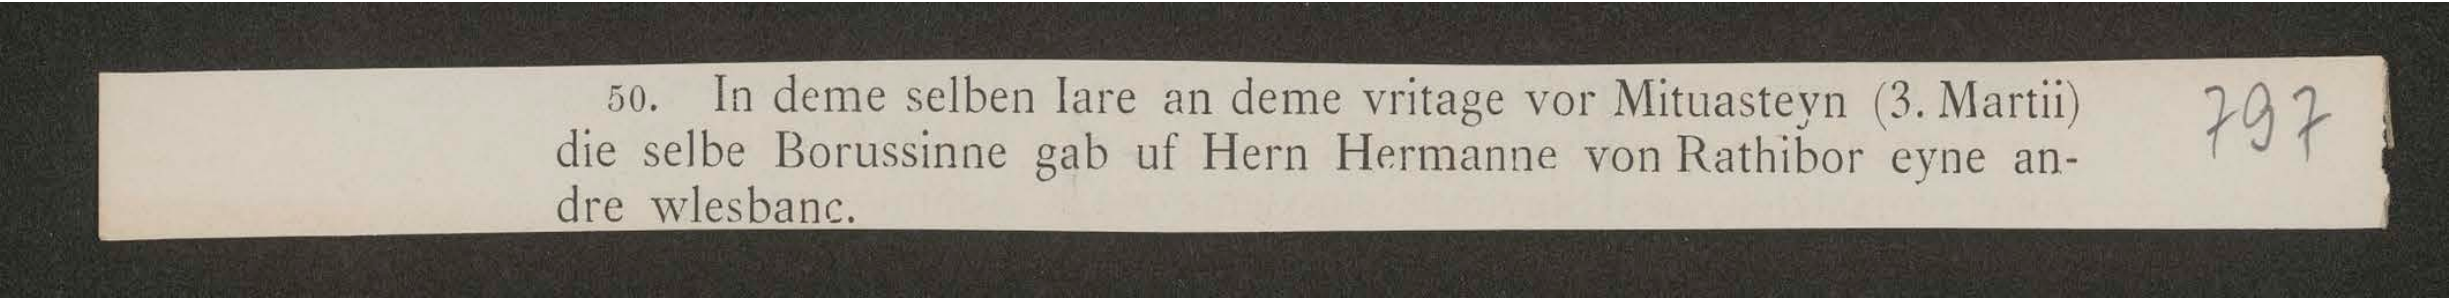 50. In deme selben Iare an deme vritage vor Mituasteyn (3. Martii) 797
die selbe Borussinne gab uf Hern Hermanne von Rathibor eyne an-
dre wlesbanc.